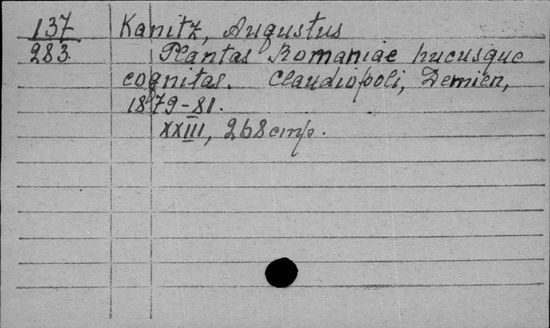 137 Kanitz, Augustus
283. Plantas Romaniae hucusque
cognitas. Claudiopoli, Demien,
1879-81.
XXIII, 268 cmp.